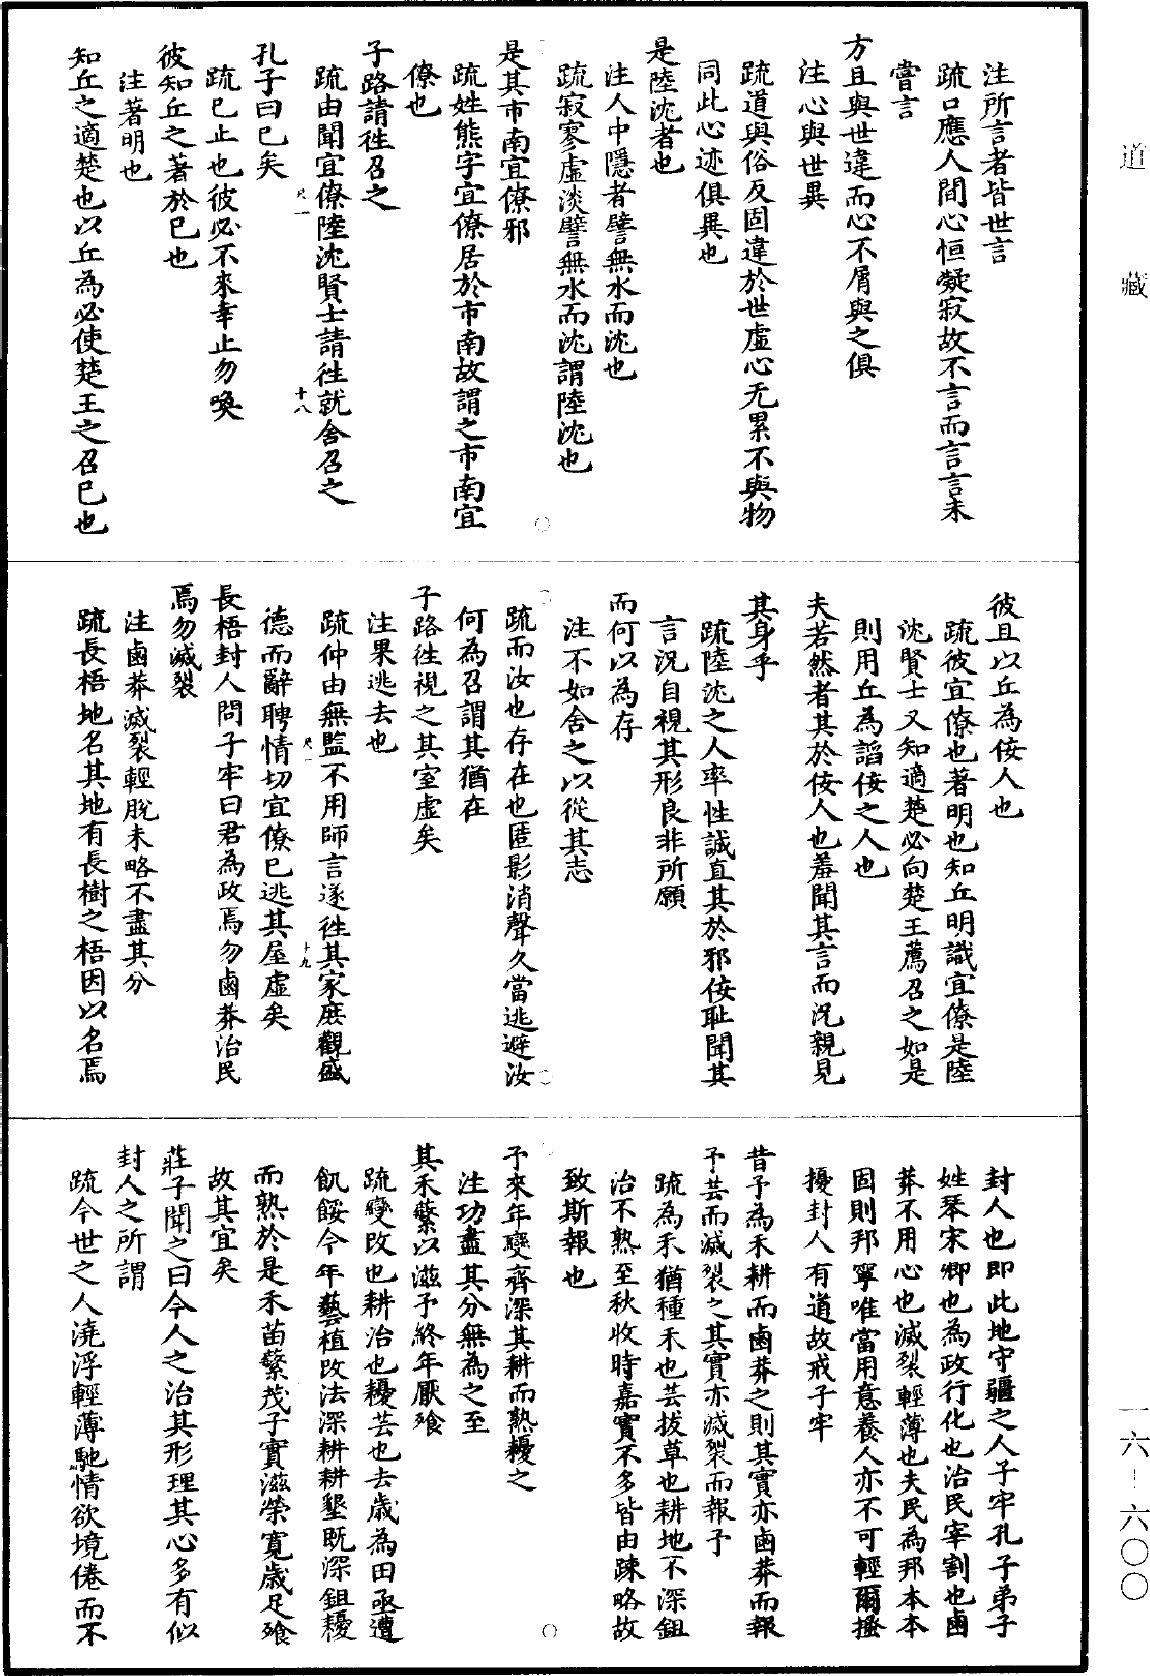 道藏
注所言者皆世言
疏口應人間心恒凝寂故不言而言言未
嘗言
方且與世違而心不屑與之俱
注心與世異
疏道與俗反固違於世虛心无累不與物
同此心迹俱異也
是陸沈者也
注人中隱者譬無水而沈也
疏寂寥虛淡譬無水而沈謂陸沈也
是其市南宜僚邪
疏姓熊字宜僚居於市南故謂之市南宜
僚也
子路請往召之
疏由聞宜僚陸沈賢士請往就舍召之
尺一
十八
孔子曰已矣
疏已止也彼必不來幸止勿喚
彼知丘之著於已也
注著明也
知丘之適楚也以丘為必使楚王之召已也
彼且以丘為佞人也
疏彼宜僚也著明也知丘明識宜僚是陸
沈賢士又知適楚必向楚王薦召之如是
則用丘為諂佞之人也
夫若然者其於佞人也羞聞其言而況親見
其身乎
疏陸沈之人率性誠直其於邪佞耻聞其
言況自視其形良非所願
而何以為存
注不如舍之以從其志
疏而汝也存在也匿影消聲久當逃避汝
何為召謂其猶在
子路往視之其室虛矣
注果逃去也
疏仲由無監不用師言遂往其家庶觀盛
尺一
十九
德而辭聘情切宜僚已逃其屋虛矣
長梧封人問子牢曰君為政焉勿鹵莽治民
焉勿滅裂
注鹵莽滅裂輕脫末略不盡其分
疏長梧地名其地有長樹之梧因以名焉
封人也即此地守疆之人子牢孔子弟子
姓琴宋卿也為政行化也治民宰割也鹵
莽不用心也滅裂輕薄也夫民為邦本本
固則邦寧唯當用意養人亦不可輕爾搔
擾封人有道故戒子牢
昔予為禾耕而鹵莽之則其實亦鹵莽而報
予芸而滅裂之其實亦滅裂而報予
疏為禾猶種禾也芸拔草也耕地不深鉏
治不熟至秋收時嘉實不多皆由踈略故
致斯報也
予來年變齊深其耕而熟耰之
注功盡其分無為之至
其禾蘩以滋予終年厭飱
疏變改也耕治也耰芸也去歲為田亟遭
飢餒今年藝植改法深耕耕墾既深鉏耰
而熟於是禾苗蘩茂子實滋榮寬歲足飱
故其宜矣
莊子聞之曰今人之治其形理其心多有似
封人之所謂
疏今世之人澆浮輕薄馳情欲境倦而不
一六-六〇〇